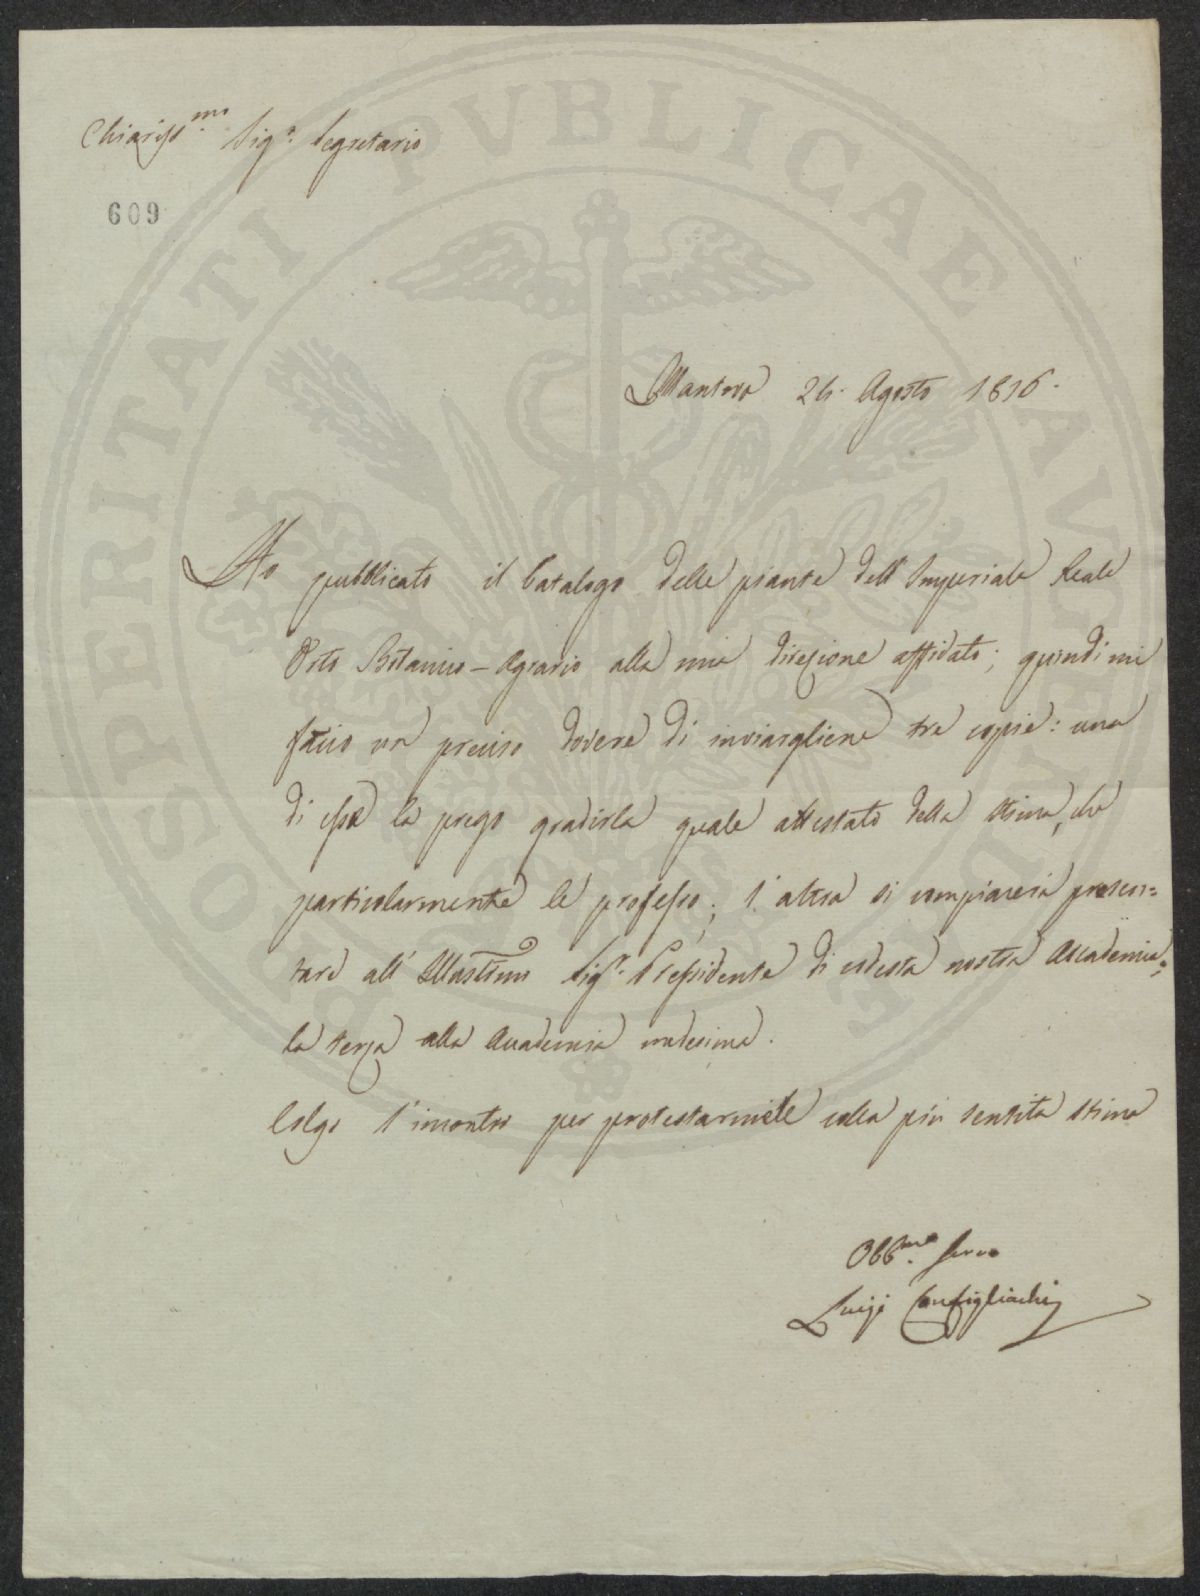 Chiariss.mo Sig.r Segretario
609
Mantova 24. Agosto 1816.
Ho pubblicato il Catalogo delle piante dell'Imperiale Reale
Orto Botanico-Agrario alla mia direzione affidato; quindi mi
faccio un preciso dovere di inviargliene tre copie: una
di esse la prego gradirla quale attestato della stima, che
particolarmente le professo; l'altra si compiacerà presen=
tare all' Illustrmo Sig.r Presidente di codesta nostra Accademia;
la terza alla Accademia medesima.
Colgo l'incontro per protestarmele colla più sentita stima
Obb.mo Servo
Luigi Configliachi
PROSPERITATI PVBLICAE AVGENDAE